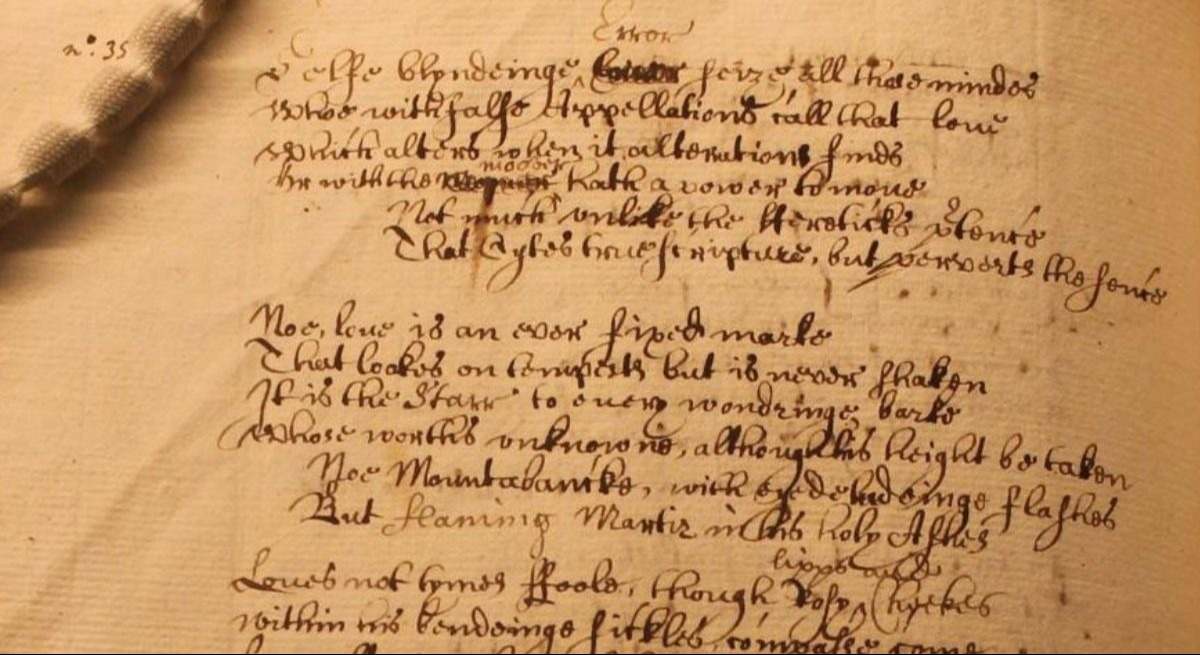 Error
n.º 35
Selfe blyndeinge seize all those mindes
Whoe with false Appellations call that love
Which alters when it alterations finds
mover
Or with the hath a power to move
Not much unlike the Hereticks p̄tence
That Cytes true scripture, but perverts the sence
Noe, love is an ever fixed marke
That lookes on tempests but is never shaken
It is the Starr to every wondringe barke
Whose worths unknowne, although his height be taken
Noe Mountabancke, with eyedeludeinge flashes
But flaming Martir in his holy Ashes
lipps and
Loves not tymes ffoole, though Rosy Cheekes
within his bendeinge sickles, compasse come